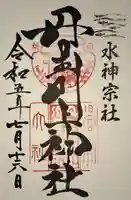 水神宗社
丹生川上神社
令和五年七月十六日